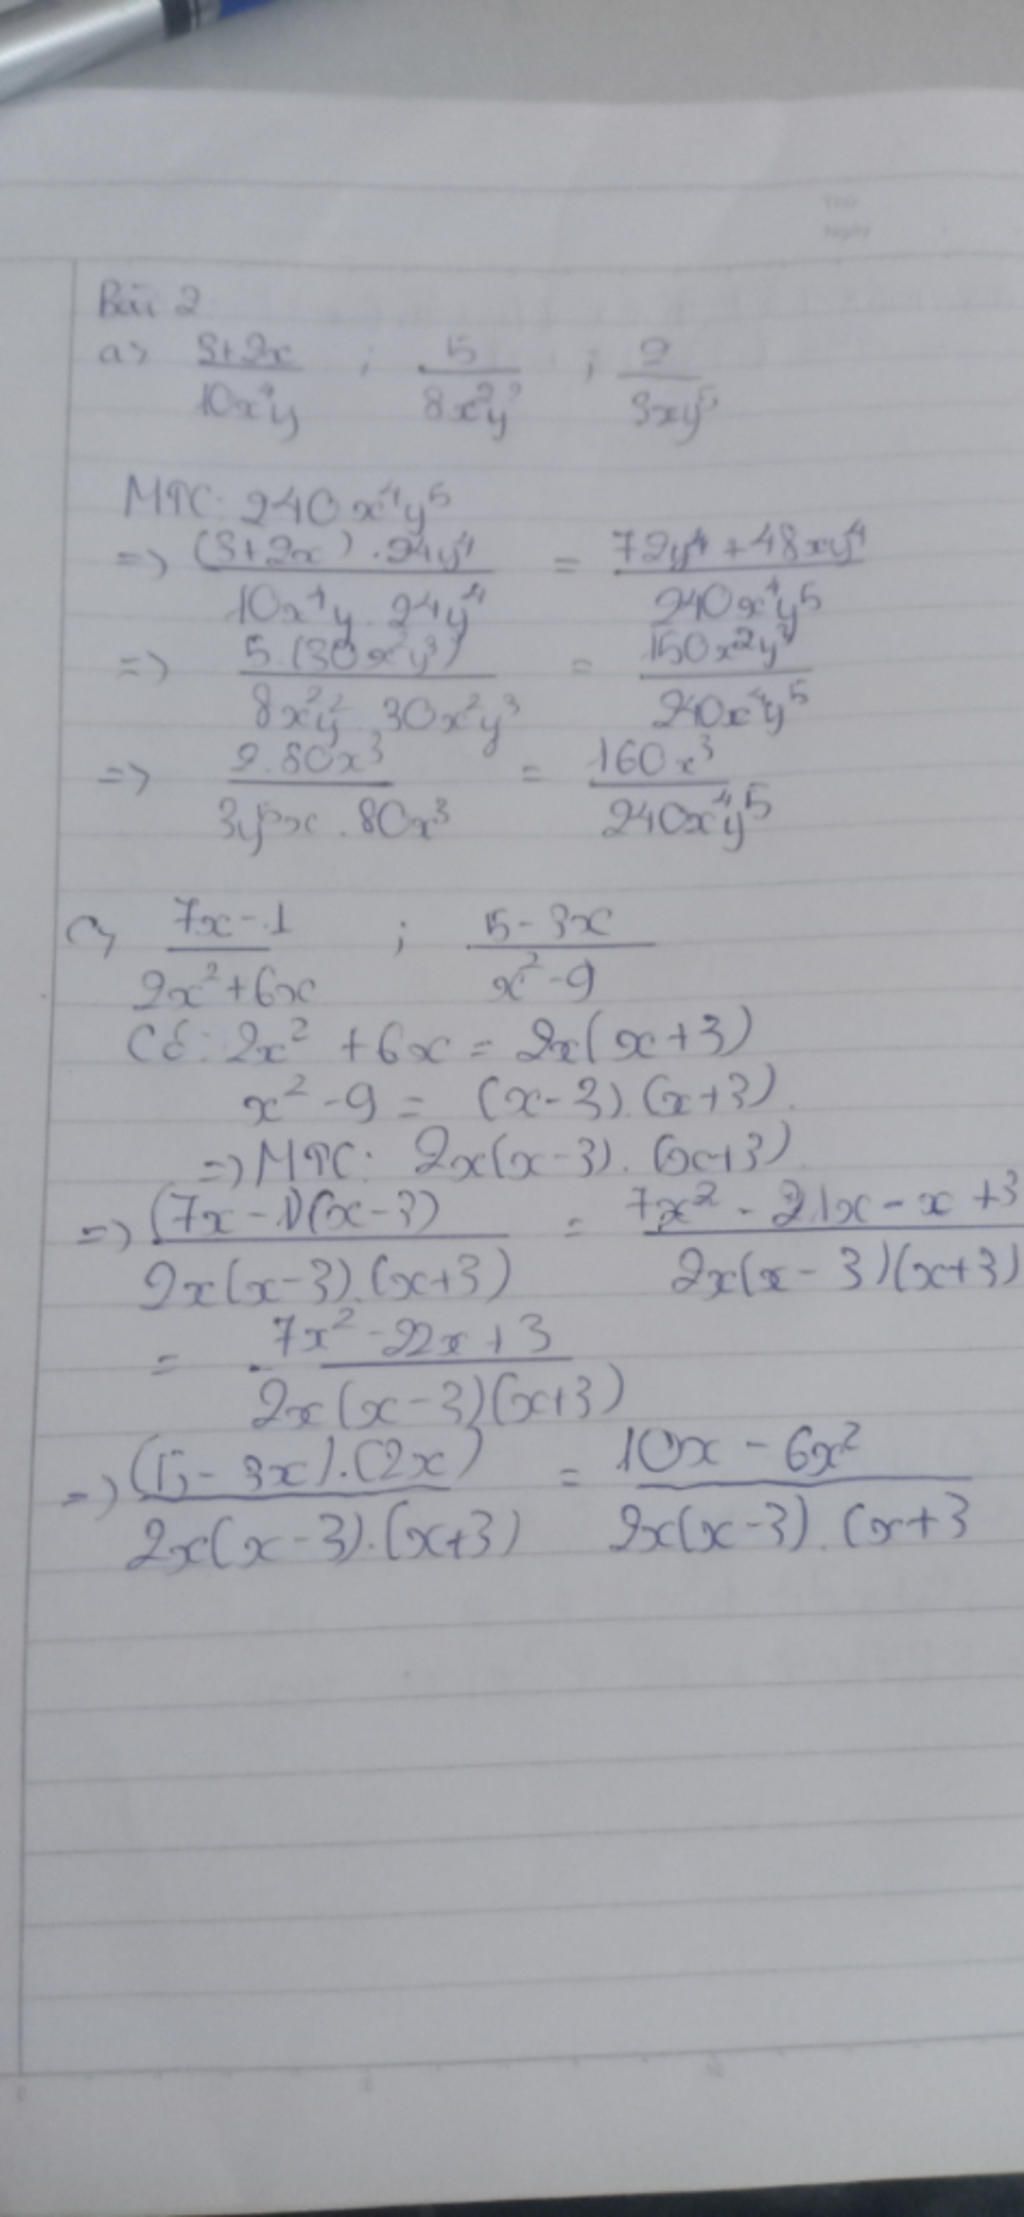 Thứ
Ngày
Bài 2
a> (3+2x)/(10x⁴y) ; 5/(8x²y²) ; 2/(3xy⁵)
MTC: 240x⁴y⁵
=> ((3+2x).24y⁴)/(10x⁴y.24y⁴) = (72y⁴+48xy⁴)/(240x⁴y⁵)
=> (5.(30x²y³))/(8x²y².30x²y³) = (150x²y³)/(240x⁴y⁵)
=> (2.80x³)/(3y⁵x.80x³) = (160x³)/(240x⁴y⁵)
c> (7x-1)/(2x²+6x) ; (5-3x)/(x²-9)
Có: 2x²+6x = 2x(x+3)
x²-9 = (x-3).(x+3)
=> MTC: 2x(x-3).(x+3)
=> ((7x-1)(x-3))/(2x(x-3).(x+3)) = (7x²-21x-x+3)/(2x(x-3)(x+3))
= (7x²-22x+3)/(2x(x-3)(x+3))
=> ((5-3x).(2x))/(2x(x-3).(x+3)) = (10x-6x²)/(2x(x-3).(x+3